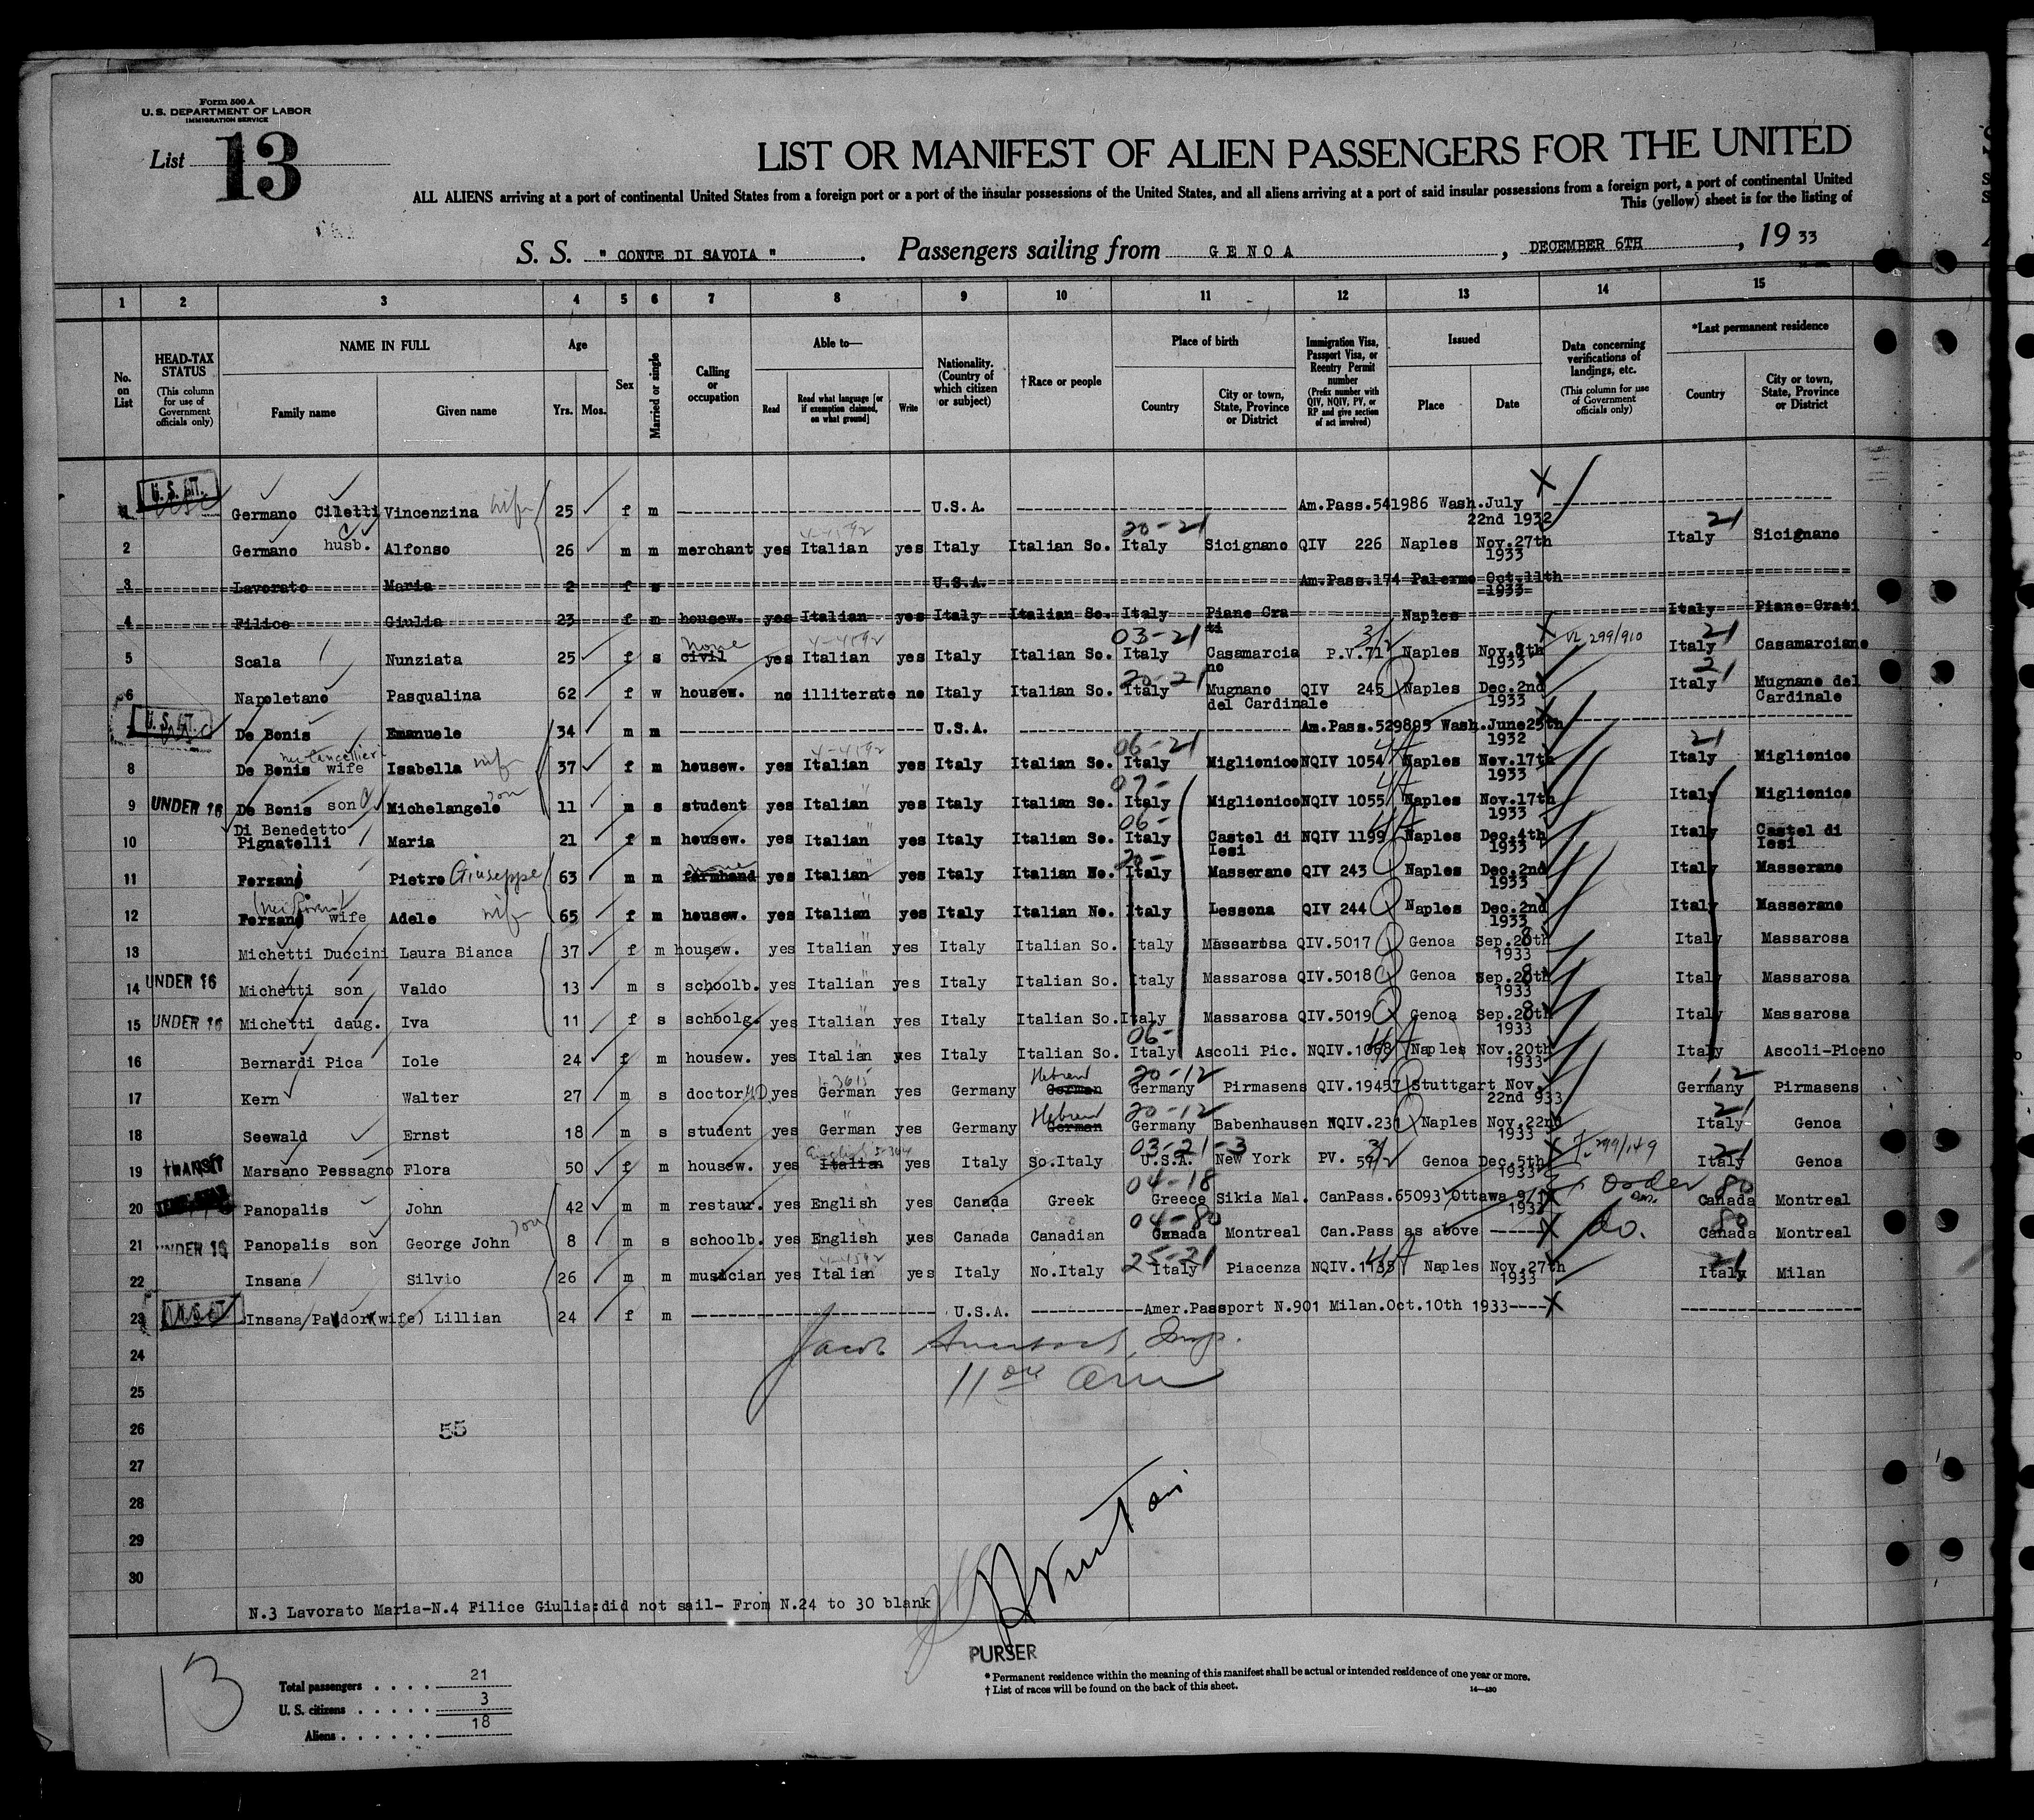 Form 500 A
U. S. DEPARTMENT OF LABOR
IMMIGRATION SERVICE
List 13
LIST OR MANIFEST OF ALIEN PASSENGERS FOR THE UNITED
ALL ALIENS arriving at a port of continental United States from a foreign port or a port of the insular possessions of the United States, and all aliens arriving at a port of said insular possessions from a foreign port, a port of continental United
This (yellow) sheet is for the listing of
S. S. " CONTE DI SAVOIA " . Passengers sailing from G E N O A , DECEMBER 6TH , 19 33
1 2 3 4 5 6 7 8 9 10 11 12 13 14 15
No. on List
HEAD-TAX STATUS (This column for use of Government officials only)
NAME IN FULL Family name Given name
Age Yrs. Mos.
Sex
Married or single
Calling or occupation
Able to— Read Read what language [or if exemption claimed, on what ground] Write
Nationality. (Country of which citizen or subject)
†Race or people
Place of birth Country City or town, State, Province or District
Immigration Visa, Passport Visa, or Reentry Permit number (Prefix number with QIV, NQIV, PV, or RP and give section of act involved)
Issued Place Date
Data concerning verifications of landings, etc. (This column for use of Government officials only)
*Last permanent residence Country City or town, State, Province or District
1 U.S. CIT. Germano Ciletti Vincenzina wife 25 f m U.S.A. Am.Pass.541986 Wash.July 22nd 1932
2 Germano husb. Alfonso 26 m m merchant yes Italian yes Italy Italian So. 20-21 Italy Sicignano QIV 226 Naples Nov.27th 1933 21 Italy Sicignano
3 Lavorato Maria 2 f s U.S.A. Am.Pass.174 Palermo Oct.11th 1933
4 Filice Giulia 23 f m housew. yes Italian yes Italy Italian So. Italy Piane Crati Naples Italy Piane Crati
5 Scala Nunziata 25 f s civil none yes Italian yes Italy Italian So. 03-21 Italy Casamarciano P.V.71 3/2 Naples Nov.8th 1933 299/910 21 Italy Casamarciano
6 Napoletano Pasqualina 62 f w housew. no illiterate no Italy Italian So. 20-21 Italy Mugnano del Cardinale QIV 245 Naples Dec.2nd 1933 21 Italy Mugnano del Cardinale
7 U.S. CIT. De Bonis Emanuele 34 m m U.S.A. Am.Pass.529895 Wash.June25th 1932
8 De Bonis wife Isabella wife 37 f m housew. yes Italian yes Italy Italian So. 06-21 Italy Miglionico NQIV 1054 Naples Nov.17th 1933 21 Italy Miglionico
9 UNDER 16 De Bonis son Michelangelo son 11 m s student yes Italian yes Italy Italian So. 07- Italy Miglionico NQIV 1055 Naples Nov.17th 1933 Italy Miglionico
10 Di Benedetto Pignatelli Maria 21 f m housew. yes Italian yes Italy Italian So. 06- Italy Castel di Iesi NQIV 1199 Naples Dec.4th 1933 Italy Castel di Iesi
11 Ferzani Pietro Giuseppe 63 m m farmhand none yes Italian yes Italy Italian No. 20- Italy Masserano QIV 243 Naples Dec.2nd 1933 Italy Masserano
12 Ferzano wife Adele wife 65 f m housew. yes Italian yes Italy Italian No. Italy Lessona QIV 244 Naples Dec.2nd 1933 Italy Masserano
13 Michetti Duccini Laura Bianca 37 f m housew. yes Italian yes Italy Italian So. Italy Massarosa QIV.5017 Genoa Sep.28th 1933 Italy Massarosa
14 UNDER 16 Michetti son Valdo 13 m s schoolb. yes Italian yes Italy Italian So. Italy Massarosa QIV.5018 Genoa Sep.28th 1933 Italy Massarosa
15 UNDER 16 Michetti daug. Iva 11 f s schoolg. yes Italian yes Italy Italian So. Italy Massarosa QIV.5019 Genoa Sep.28th 1933 Italy Massarosa
16 Bernardi Pica Iole 24 f m housew. yes Italian yes Italy Italian So. 06- Italy Ascoli Pic. NQIV.1068 Naples Nov.20th 1933 Italy Ascoli-Piceno
17 Kern Walter 27 m s doctor MD. yes German yes Germany German Hebrew 20-12 Germany Pirmasens QIV.19457 Stuttgart Nov. 22nd 933 12 Germany Pirmasens
18 Seewald Ernst 18 m s student yes German yes Germany German Hebrew 20-12 Germany Babenhausen NQIV.231 Naples Nov.22nd 1933 21 Italy Genoa
19 TRANSIT Marsano Pessagno Flora 50 f m housew. yes Italian English yes Italy So.Italy 03-21-3 U.S.A. New York PV. Genoa Dec.5th 1933 299/149 21 Italy Genoa
20 Panopalis John 42 m m restaur. yes English yes Canada Greek 04-18 Greece Sikia Mal. CanPass.65093 Ottawa 1933 order 80 Canada Montreal
21 UNDER 16 Panopalis son George John son 8 m s schoolb. yes English yes Canada Canadian 04-80 Canada Montreal Can.Pass as above do. 80 Canada Montreal
22 Insana Silvio 26 m m musician yes Italian yes Italy No.Italy 25-21 Italy Piacenza NQIV.1135 Naples Nov.27th 1933 21 Italy Milan
23 Insana/Pador(wife) Lillian 24 f m U.S.A. Amer.Passport N.901 Milan.Oct.10th 1933
24
Jacob Insp.
25
11 am
26 55
27
28
29
30
N.3 Lavorato Maria-N.4 Filice Giulia:did not sail- From N.24 to 30 blank
PURSER
13
Total passengers . . . . 21
U. S. citizens . . . . . 3
Aliens . . . . . . 18
* Permanent residence within the meaning of this manifest shall be actual or intended residence of one year or more.
† List of races will be found on the back of this sheet.
14—430